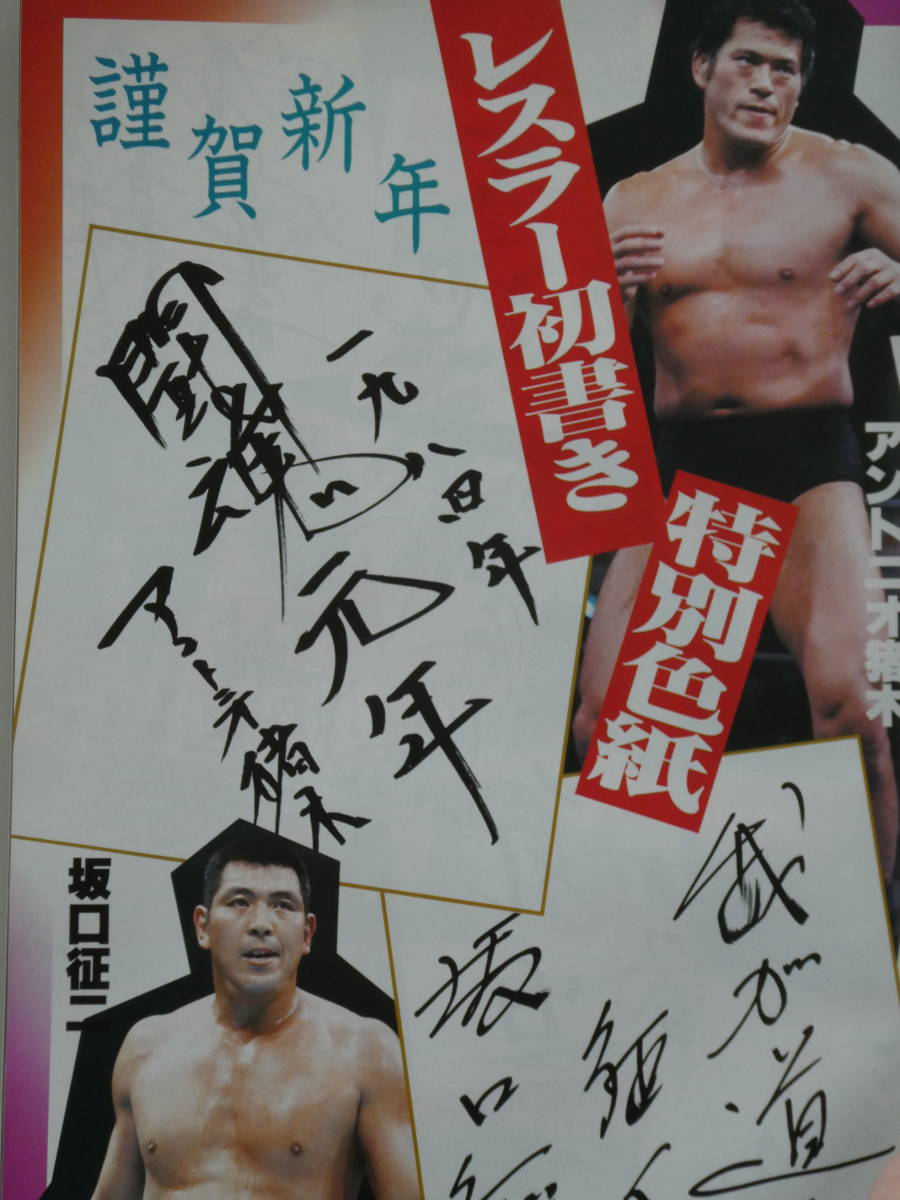 謹賀新年
レスラー初書き
特別色紙
アントニオ猪木
一九八〇年
闘魂元年
アントニオ猪木
坂口征二
我が道
坂口征